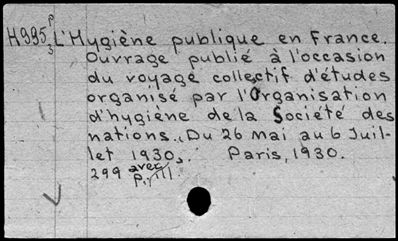 H995 p/3 L'Hygiène publique en France.
Ouvrage publié à l'occasion
du voyage collectif d'études
organisé par l'Organisation
d'hygiène de la Société des
nations. Du 26 Mai au 6 Juil-
let 1930. Paris, 1930.
299 avec
p. ill.